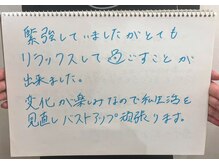 緊張していましたがとても
リラックスして過ごすことが
出来ました。
変化が楽しみなので私生活を
見直しバストアップ頑張ります。